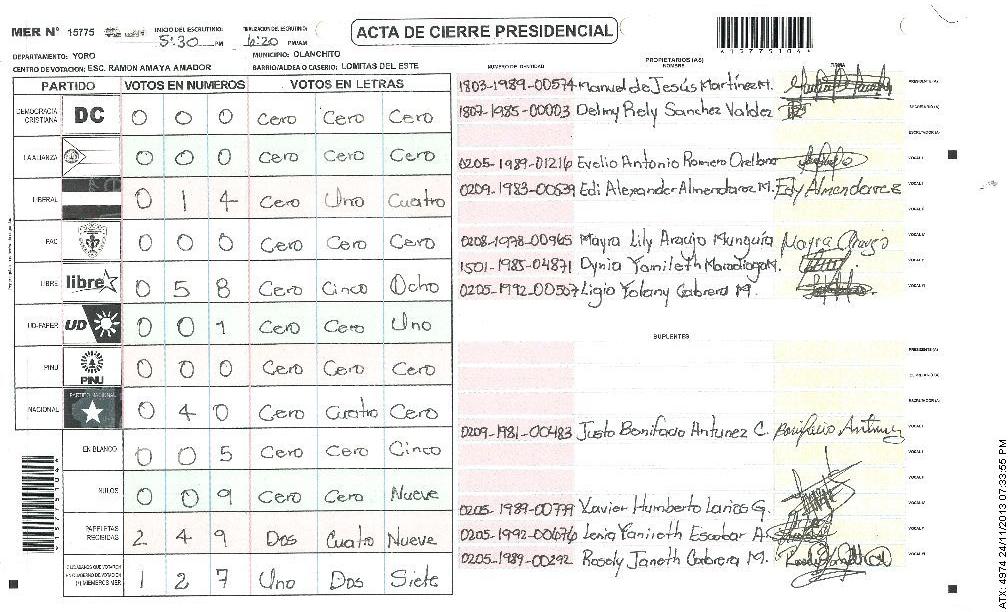 MER N° 15775 INICIO DEL ESCRUTINIO: 5:30 PM FINALIZACION DEL ESCRUTINIO: 6:20 PM/AM
ACTA DE CIERRE PRESIDENCIAL
4157751044
DEPARTAMENTO: YORO MUNICIPIO: OLANCHITO
CENTRO DE VOTACION: ESC. RAMON AMAYA AMADOR BARRIO/ALDEA O CASERIO: LOMITAS DEL ESTE
PARTIDO VOTOS EN NUMEROS VOTOS EN LETRAS
DEMOCRACIA CRISTIANA DC 0 0 0 Cero Cero Cero
LA ALIANZA 0 0 0 Cero Cero Cero
LIBERAL 0 1 4 Cero Uno Cuatro
PAC 0 0 0 Cero Cero Cero
LIBRE libre 0 5 8 Cero Cinco Ocho
UD-FAPER UD 0 0 1 Cero Cero Uno
PINU PINU 0 0 0 Cero Cero Cero
NACIONAL PARTIDO NACIONAL 0 4 0 Cero Cuatro Cero
EN BLANCO 0 0 5 Cero Cero Cinco
NULOS 0 0 9 Cero Cero Nueve
PAPELETAS RECIBIDAS 2 4 9 Dos Cuatro Nueve
CIUDADANOS QUE VOTARON EN CUADERNO DE VOTACION (+) MIEMBROS MER 1 2 7 Uno Dos Siete
PROPIETARIOS (AS)
NUMERO DE IDENTIDAD NOMBRE FIRMA
1803-1989-00574 Manuel de Jesús Martínez M. PRESIDENTE (A)
1807-1985-00003 Delmy Rely Sanchez Valdez SECRETARIO (A)
ESCRUTADOR (A)
0205-1989-01216 Evelio Antonio Romero Orellana VOCAL I
0209-1983-00529 Edi Alexander Almendarez M. Edy Almendarez
0208-1978-00965 Mayra Lily Araujo Munguía Mayra
1501-1985-04871 Dynia Yamileth Maradiaga M.
0205-1992-00507 Ligia Yolany Cabrera M.
SUPLENTES
PRESIDENTE (A)
SECRETARIO (A)
ESCRUTADOR (A)
0209-1981-00483 Justo Bonifacio Antunez C. Bonifacio Antunez
0205-1989-00779 Xavier Humberto Larios G.
0205-1992-00676 Lenia Yanireth Escobar A.
0205-1989-00292 Rosely Janeth Cabrera M.
ATX: 4974 24/11/2013 07:33:55 PM